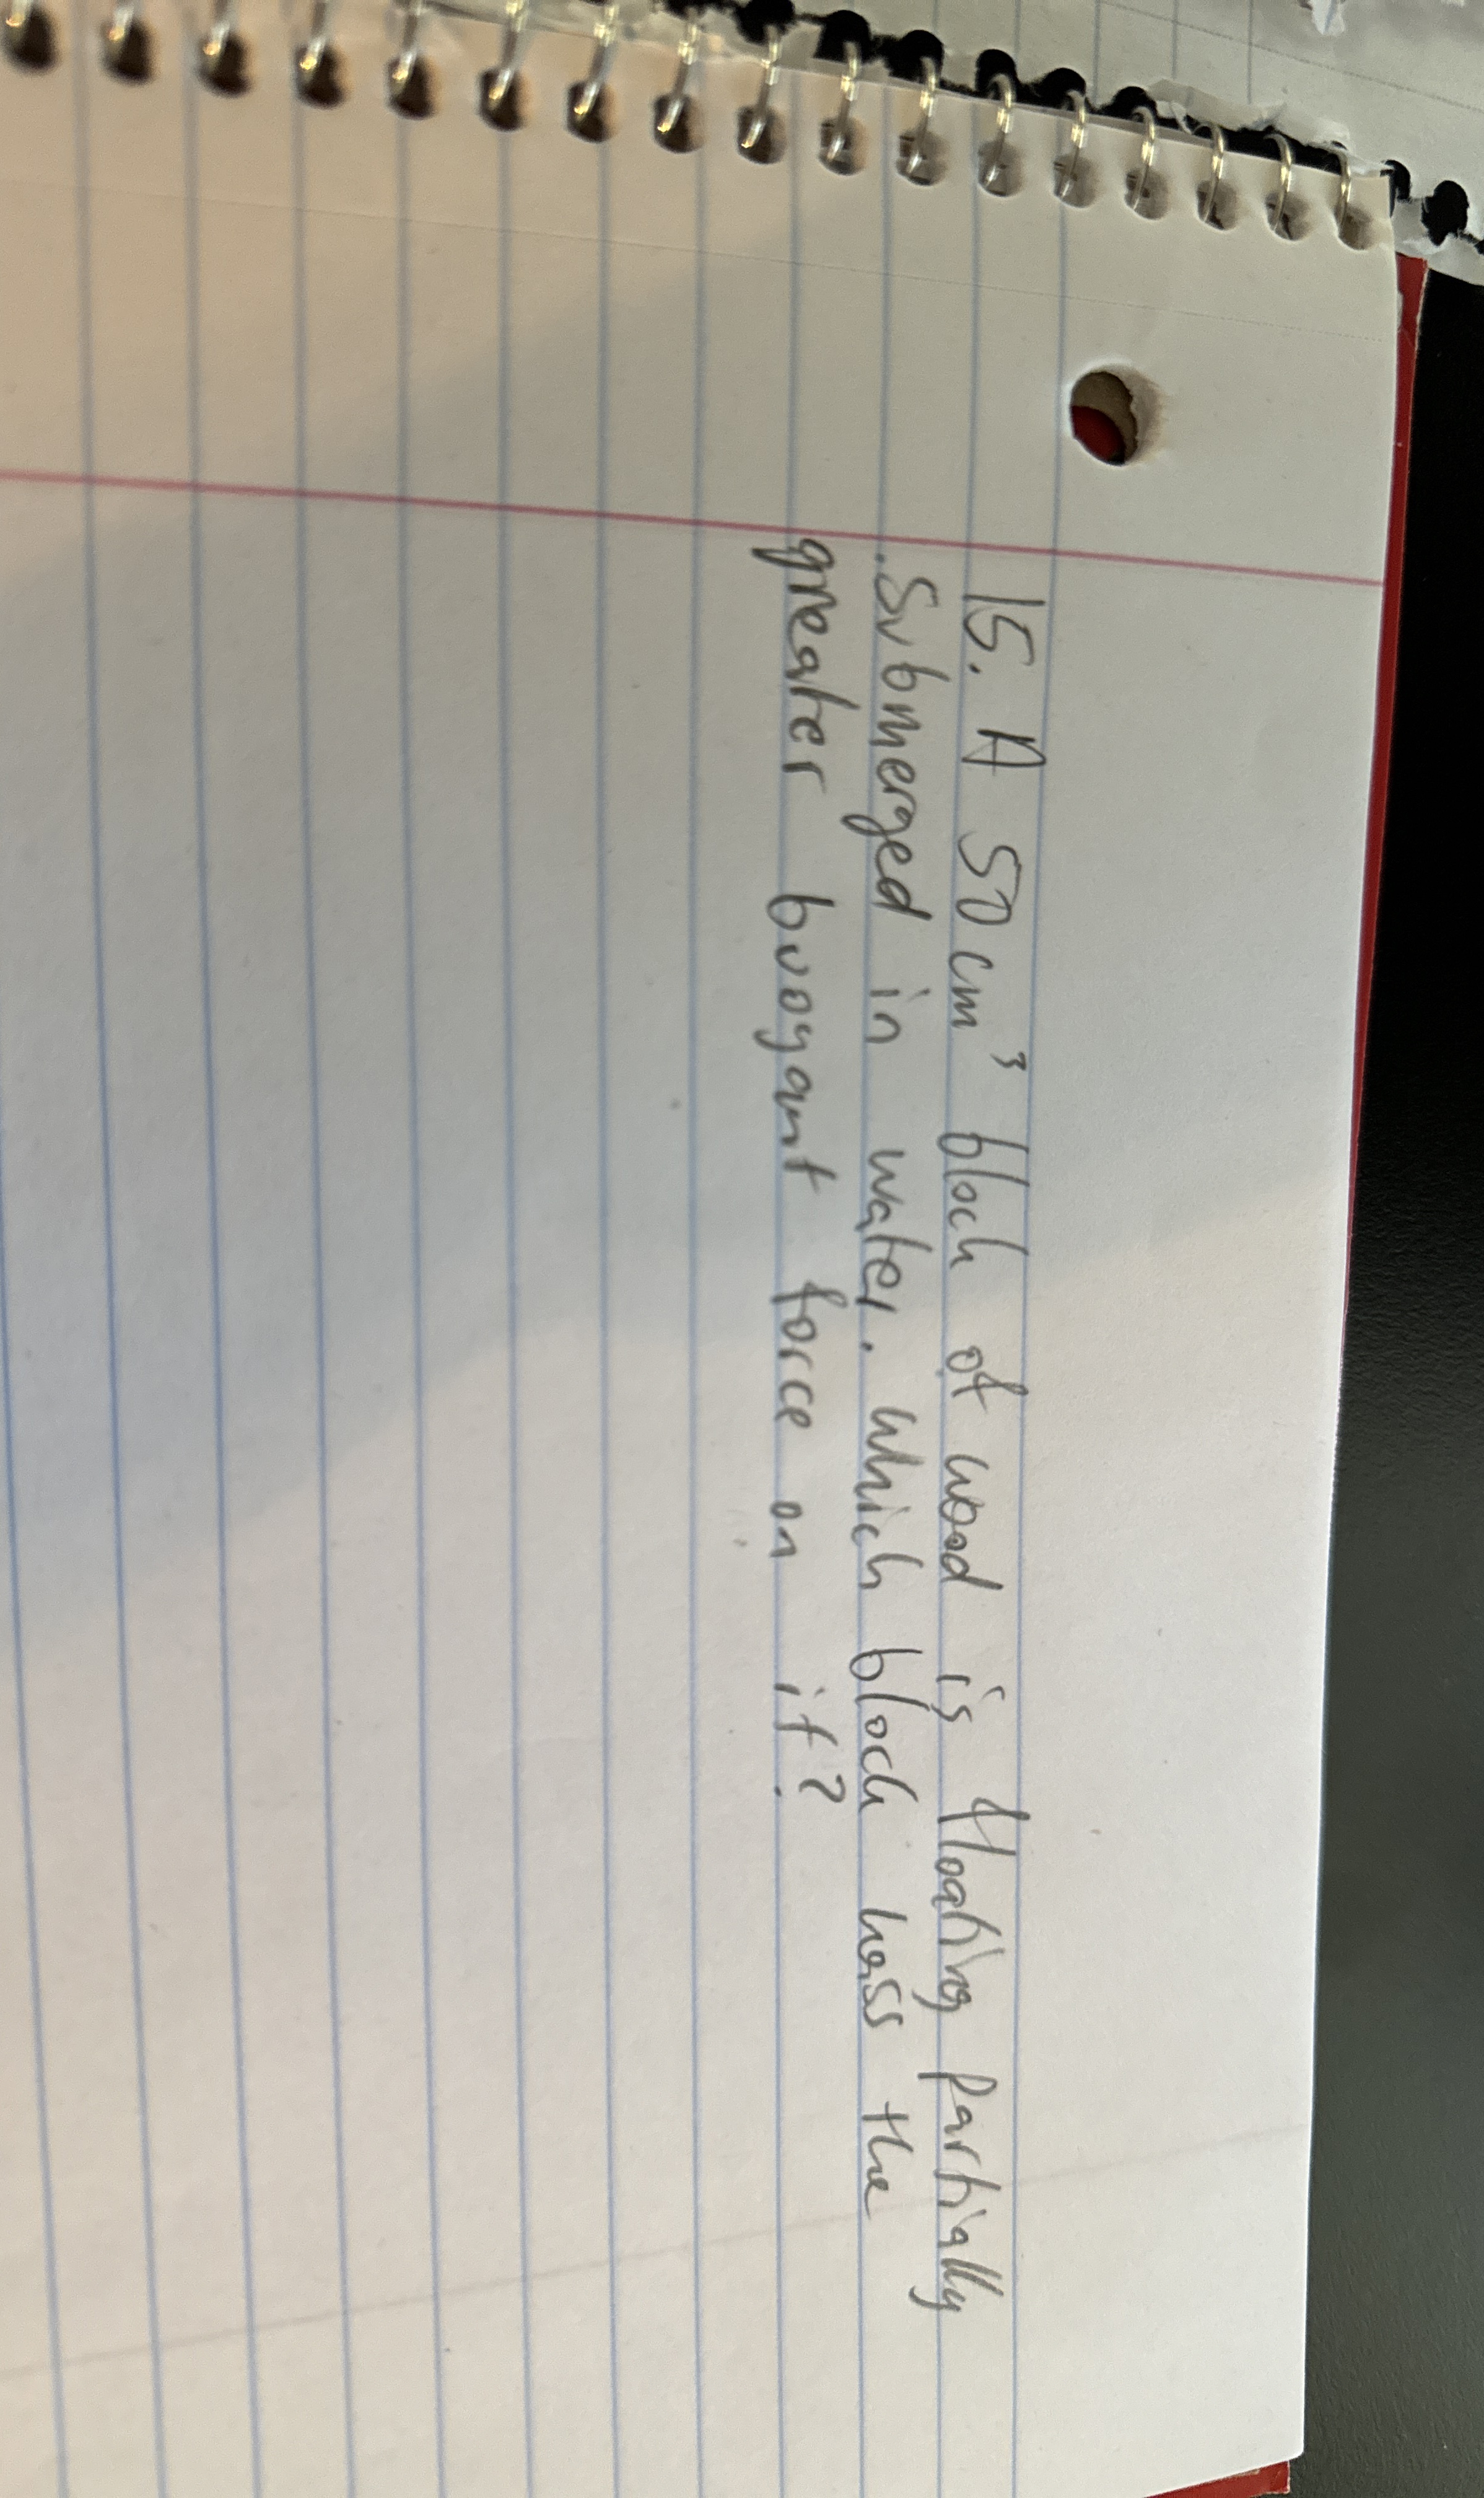 15. A 50 cm³ block of wood is floating partially
submerged in water. Which block hass the
greater buoyant force on it?